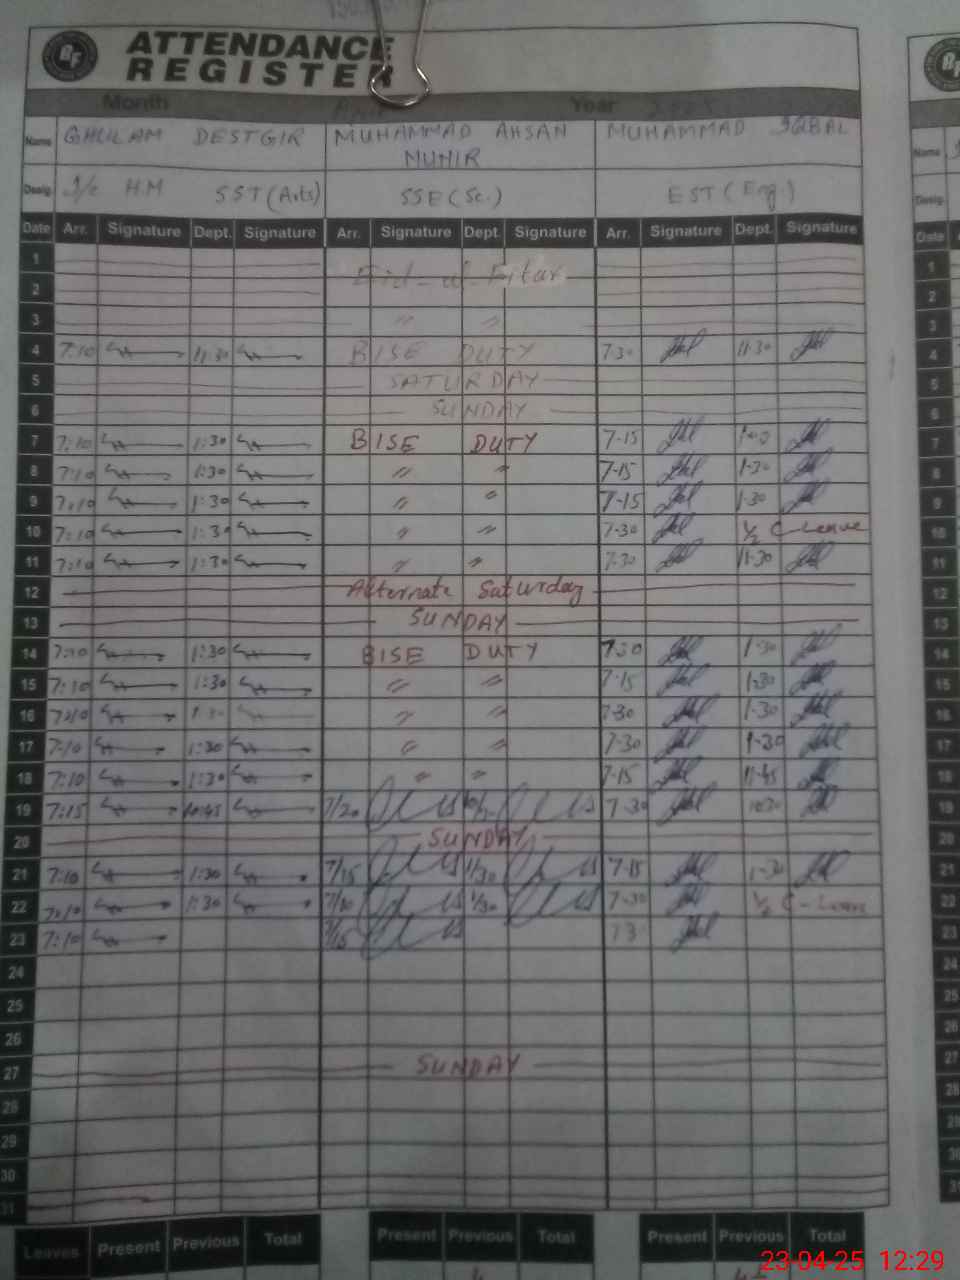 ATTENDANCE
REGISTER
Month Year
Name GHULAM DESTGIR MUHAMMAD AHSAN MUNIR MUHAMMAD IQBAL
Desig. I/c H.M SST (Arts) SSE (Sc.) EST (Eng.)
Date Arr. Signature Dept. Signature Arr. Signature Dept. Signature Arr. Signature Dept. Signature Date
1 1
2 Eid-ul-Fitar 2
3 〃 〃 3
4 7:10 11:30 BISE DUTY 7-30 11-30 4
5 SATURDAY 5
6 SUNDAY 6
7 7:10 1:30 BISE DUTY 7-15 7
8 7:10 1:30 〃 〃 7-15 1-30 8
9 7:10 1:30 〃 〃 7-15 1-30 9
10 7:10 1:30 〃 〃 7-30 1/2 C-Leave 10
11 7:10 1:30 〃 〃 7-30 11-30 11
12 Alternate Saturday 12
13 SUNDAY 13
14 7:10 1:30 BISE DUTY 7-30 1-30 14
15 7:10 1:30 〃 〃 7-15 1-30 15
16 7:10 1:30 〃 〃 7-30 1-30 16
17 7:10 1:30 〃 〃 7-30 1-30 17
18 7:10 1:30 〃 〃 7-15 11-45 18
19 7:15 10:45 7/20 7-30 10-30 19
20 SUNDAY 20
21 7:10 1:30 7/15 1/30 7-15 1-30 21
22 7:10 1:30 1/30 7-30 1/2 C-Leave 22
23 7:10 7/15 23
24 24
25 25
26 26
27 SUNDAY 27
28 28
29 29
30 30
31 31
Leaves Present Previous Total Present Previous Total Present Previous Total
23-04-25 12:29